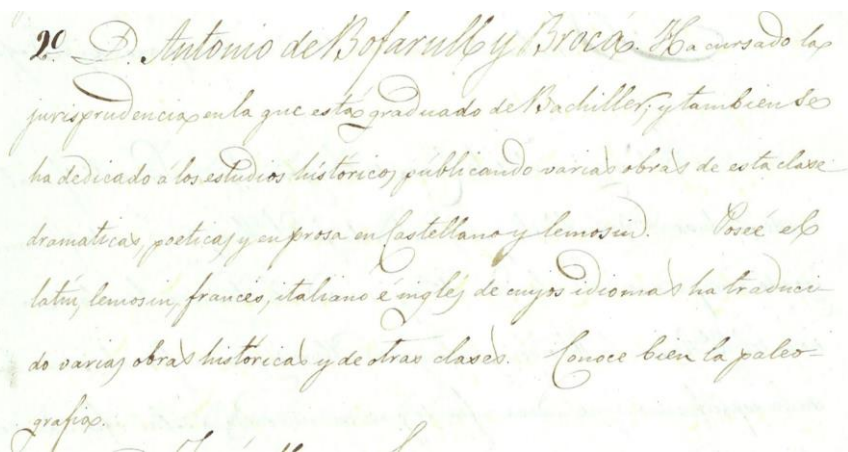 2º D. Antonio de Bofarull y Broca. Ha cursado la
jurisprudencia en la que está graduado de Bachiller; y tambien se
ha dedicado á los estudios históricos, públicando varias obras de esta clase
dramaticas, poeticas y en prosa en Castellano y lemosin. Posée el
latin, lemosin, francés, italiano é inglés de cuyos idiomas ha traduci-
do varias obras históricas y de otras clases. Conoce bien la paleo=
grafia.